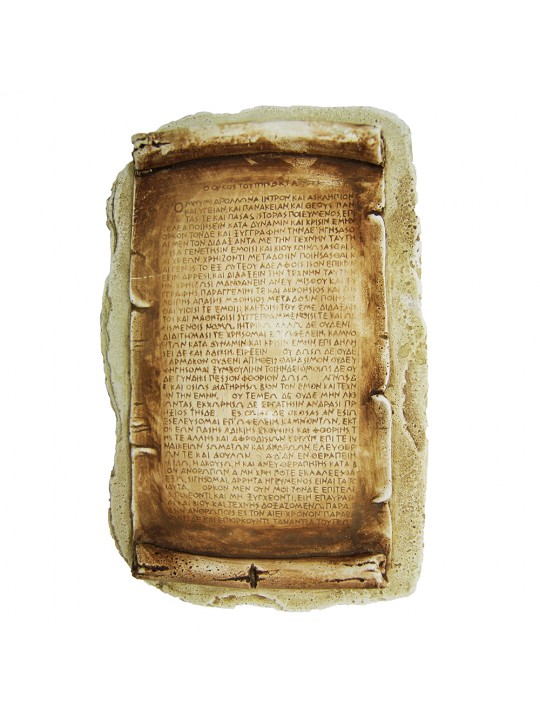 Ο ΟΡΚΟΣ ΤΟΥ ΙΠΠΟΚΡΑΤ
ΟΜΝΥΜΙ ΑΠΟΛΛΩΝΑ ΙΗΤΡΟΝ ΚΑΙ ΑΣΚΛΗΠΙΟΝ
ΚΑΙ ΥΓΕΙΑΝ ΚΑΙ ΠΑΝΑΚΕΙΑΝ ΚΑΙ ΘΕΟΥΣ ΠΑΝ
ΤΑΣ ΤΕ ΚΑΙ ΠΑΣΑΣ ΙΣΤΟΡΑΣ ΠΟΙΕΥΜΕΝΟΣ ΕΠ
ΚΑΤΑ ΔΥΝΑΜΙΝ ΚΑΙ ΚΡΙΣΙΝ ΕΜΗΝ
ΤΟΝΔΕ ΚΑΙ ΞΥΓΓΡΑΦΗΝ ΤΗΝΔΕ ΗΓΗΣΑΣΘ
ΜΕΝ ΤΟΝ ΔΙΔΑΞΑΝΤΑ ΜΕ ΤΗΝ ΤΕΧΝΗΝ ΤΑΥΤΗΝ
ΓΕΝΕΤΗΣΙΝ ΕΜΟΙΣΙ ΚΑΙ ΒΙΟΥ
ΧΡΗΙΖΟΝΤΙ ΜΕΤΑΔΟΣΙΝ ΠΟΙΗΣΑΣΘΑΙ ΚΑΙ
ΤΟ ΕΞ ΑΔΕΛΦΟΙΣ
ΚΑΙ ΔΙΔΑΞΕΙΝ ΤΗΝ ΤΕΧΝΗΝ ΤΑΥ
ΜΑΝΘΑΝΕΙΝ ΑΝΕΥ ΜΙΣΘΟΥ ΚΑΙ
ΠΑΡΑΓΓΕΛΙΗΣ ΤΕ ΚΑΙ ΑΚΡΟΗΣΙΟΣ ΚΑΙ
ΑΠΑΣΗΣ ΜΑΘΗΣΙΟΣ ΜΕΤΑΔΟΣΙΝ
ΤΕ ΕΜΟΙΣΙ ΚΑΙ ΤΟΥ ΕΜΕ ΔΙΔΑΞ
ΚΑΙ ΜΑΘΗΤΑΙΣΙ ΤΕ ΚΑΙ
ΝΟΜΩΙ ΙΗΤΡΙΚΩΙ ΑΛΛΩΙ ΔΕ ΟΥΔΕΝΙ
ΔΙΑΙΤΗΜΑΣΙ ΤΕ ΧΡΗΣΟΜΑΙ ΕΠ ΩΦΕΛΕΙΗΙ ΚΑΜΝΟ
ΚΑΤΑ ΔΥΝΑΜΙΝ ΚΑΙ ΚΡΙΣΙΝ ΕΜΗΝ ΕΠΙ ΔΗΛΗ
ΔΕ ΚΑΙ ΑΔΙΚΙΗΙ ΕΙΡΞΕΙΝ ΟΥ ΔΩΣΩ ΔΕ ΟΥΔΕ
ΦΑΡΜΑΚΟΝ ΟΥΔΕΝΙ ΑΙΤΗΘΕΙΣ ΘΑΝΑΣΙΜΟΝ ΟΥΔΕ Υ
ΦΗΓΗΣΟΜΑΙ ΞΥΜΒΟΥΛΙΗΝ ΤΟΙΗΝΔΕ ΟΜΟΙΩΣ ΔΕ ΟΥ
ΔΕ ΓΥΝΑΙΚΙ ΠΕΣΣΟΝ ΦΘΟΡΙΟΝ ΔΩΣΩ ΑΓΝΩΣ Δ
Ε ΚΑΙ ΟΣΙΩΣ ΔΙΑΤΗΡΗΣΩ ΒΙΟΝ ΤΟΝ ΕΜΟΝ ΚΑΙ ΤΕΧΝ
ΤΗΝ ΕΜΗΝ ΟΥ ΤΕΜΕΩ ΔΕ ΟΥΔΕ ΜΗΝ ΛΙΘ
ΩΝΤΑΣ ΕΚΧΩΡΗΣΩ ΔΕ ΕΡΓΑΤΗΣΙΝ ΑΝΔΡΑΣΙ ΠΡ
ΗΞΙΟΣ ΤΗΣΔΕ ΕΣ ΟΙΚΙΑΣ ΔΕ ΟΚΟΣΑΣ ΑΝ ΕΣΙΩ
ΕΣΕΛΕΥΣΟΜΑΙ ΕΠ ΩΦΕΛΕΙΗΙ ΚΑΜΝΟΝΤΩΝ ΕΚΤ
ΟΣ ΕΩΝ ΠΑΣΗΣ ΑΔΙΚΙΗΣ ΕΚΟΥΣΙΗΣ ΚΑΙ ΦΘΟΡΙΗΣ Τ
ΗΣ ΤΕ ΑΛΛΗΣ ΚΑΙ ΑΦΡΟΔΙΣΙΩΝ ΕΡΓΩΝ ΕΠΙ ΤΕ ΓΥ
ΝΑΙΚΕΙΩΝ ΣΩΜΑΤΩΝ ΚΑΙ ΑΝΔΡΩΩΝ ΕΛΕΥΘΕΡ
ΩΝ ΤΕ ΚΑΙ ΔΟΥΛΩΝ Α Δ ΑΝ ΕΝ ΘΕΡΑΠΕΙΗ
Η ΑΚΟΥΣΩ Η ΚΑΙ ΑΝΕΥ ΘΕΡΑΠΗΙΗΣ ΚΑΤΑ Β
ΙΟΝ ΑΝΘΡΩΠΩΝ Α ΜΗ ΧΡΗ ΠΟΤΕ ΕΚΛΑΛΕΕΣΘΑΙ
ΕΞΩ ΣΙΓΗΣΟΜΑΙ ΑΡΡΗΤΑ ΗΓΕΥΜΕΝΟΣ ΕΙΝΑΙ ΤΑ ΤΟ
ΙΑΥΤΑ ΟΡΚΟΝ ΜΕΝ ΟΥΝ ΜΟΙ ΤΟΝΔΕ ΕΠΙΤΕΛΕ
Α ΠΟΙΕΟΝΤΙ ΚΑΙ ΜΗ ΞΥΓΧΕΟΝΤΙ ΕΙΗ ΕΠΑΥΡΑΣ
ΘΑΙ ΚΑΙ ΒΙΟΥ ΚΑΙ ΤΕΧΝΗΣ ΔΟΞΑΖΟΜΕΝΩ ΠΑΡΑ
ΠΑΣΙΝ ΑΝΘΡΩΠΟΙΣ ΕΣ ΤΟΝ ΑΙΕΙ ΧΡΟΝΟΝ ΠΑΡΑΒ
ΔΕ ΚΑΙ ΕΠΙΟΡΚΟΥΝΤΙ ΤΑΝΑΝΤΙΑ ΤΟΥΤΕΩΝ